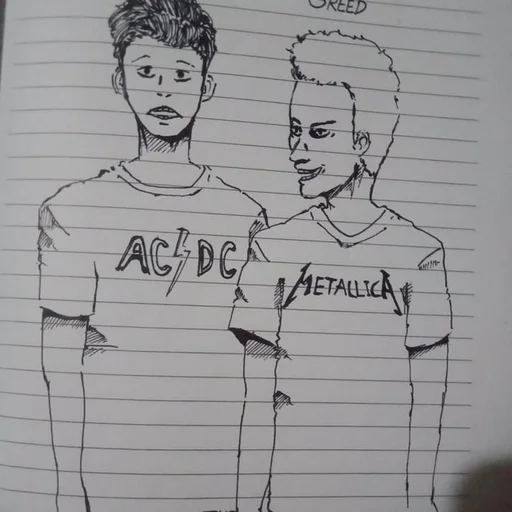 GREED
AC⚡DC
METALLICA